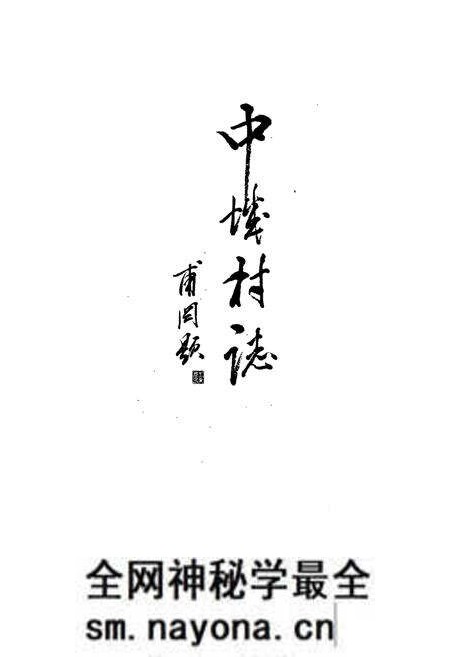 中村誌
甫题
全网神秘学最全
sm.nayona.cn